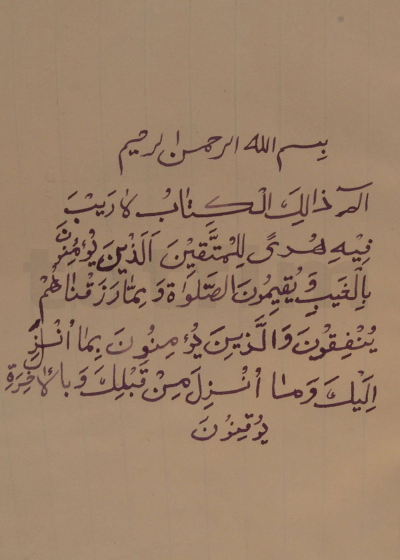 بسم الله الرحمن الرحيم
الم ذَالِكَ الْكِتَابُ لَا رَيْبَ
فِيْهِ هُدىً لِلْمتَّقِيْنَ اَلَذِيْنَ يُؤمِنُوْنَ
بِالْغَيبِ وَ يُقِيمُونَ الصَّلَوٰةَ وَ مِمَّا رَزَقْنَاهُمْ
يُنْفِقُوْنَ وَالَّذِيِنَ يُؤمِنُوْنَ بِمَا اُنْزِلَ
اِلَيْكَ وَمَا اُنْزِلَ مِنْ قَبْلِكَ وَ بِالاٰخِرَةِ
يُوْقِنِوُنَ